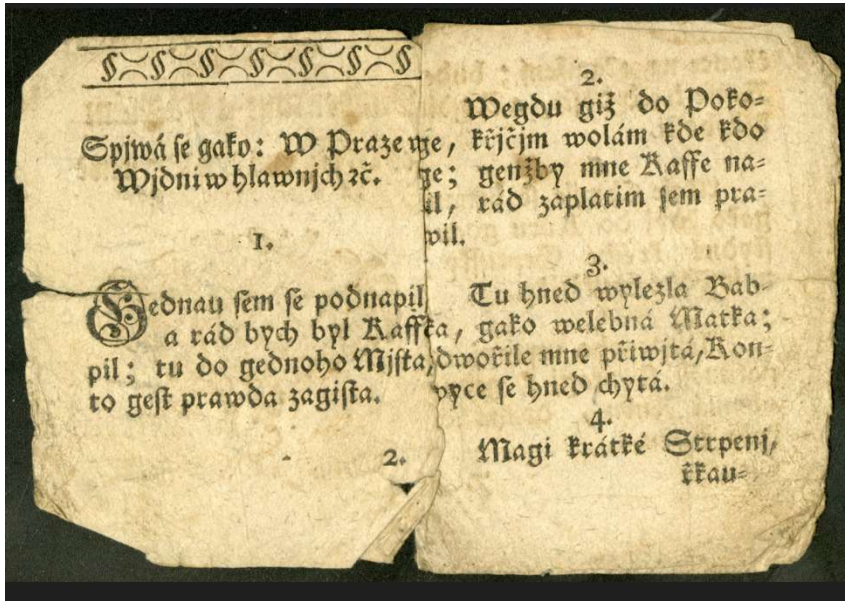 Spjwá se gako: W Praze
Wjdni w hlawnjch ꝛč.
1.
Gednau sem se podnapil
a rád bych byl Kaffe
pil; tu do gednoho Mjsta,
to gest prawda zagista.
2.
2.
Wegdu giž do Poko-
ge, křjčjm wolám kde kdo
ge; genžby mne Kaffe na-
il, rád zaplatim sem pra-
wil.
3.
Tu hned wylezla Bab-
ka, gako welebná Matka;
dwořile mne přiwjtá, Kon-
wyce se hned chytá.
4.
Magj krátké Strpenj,
řkau-